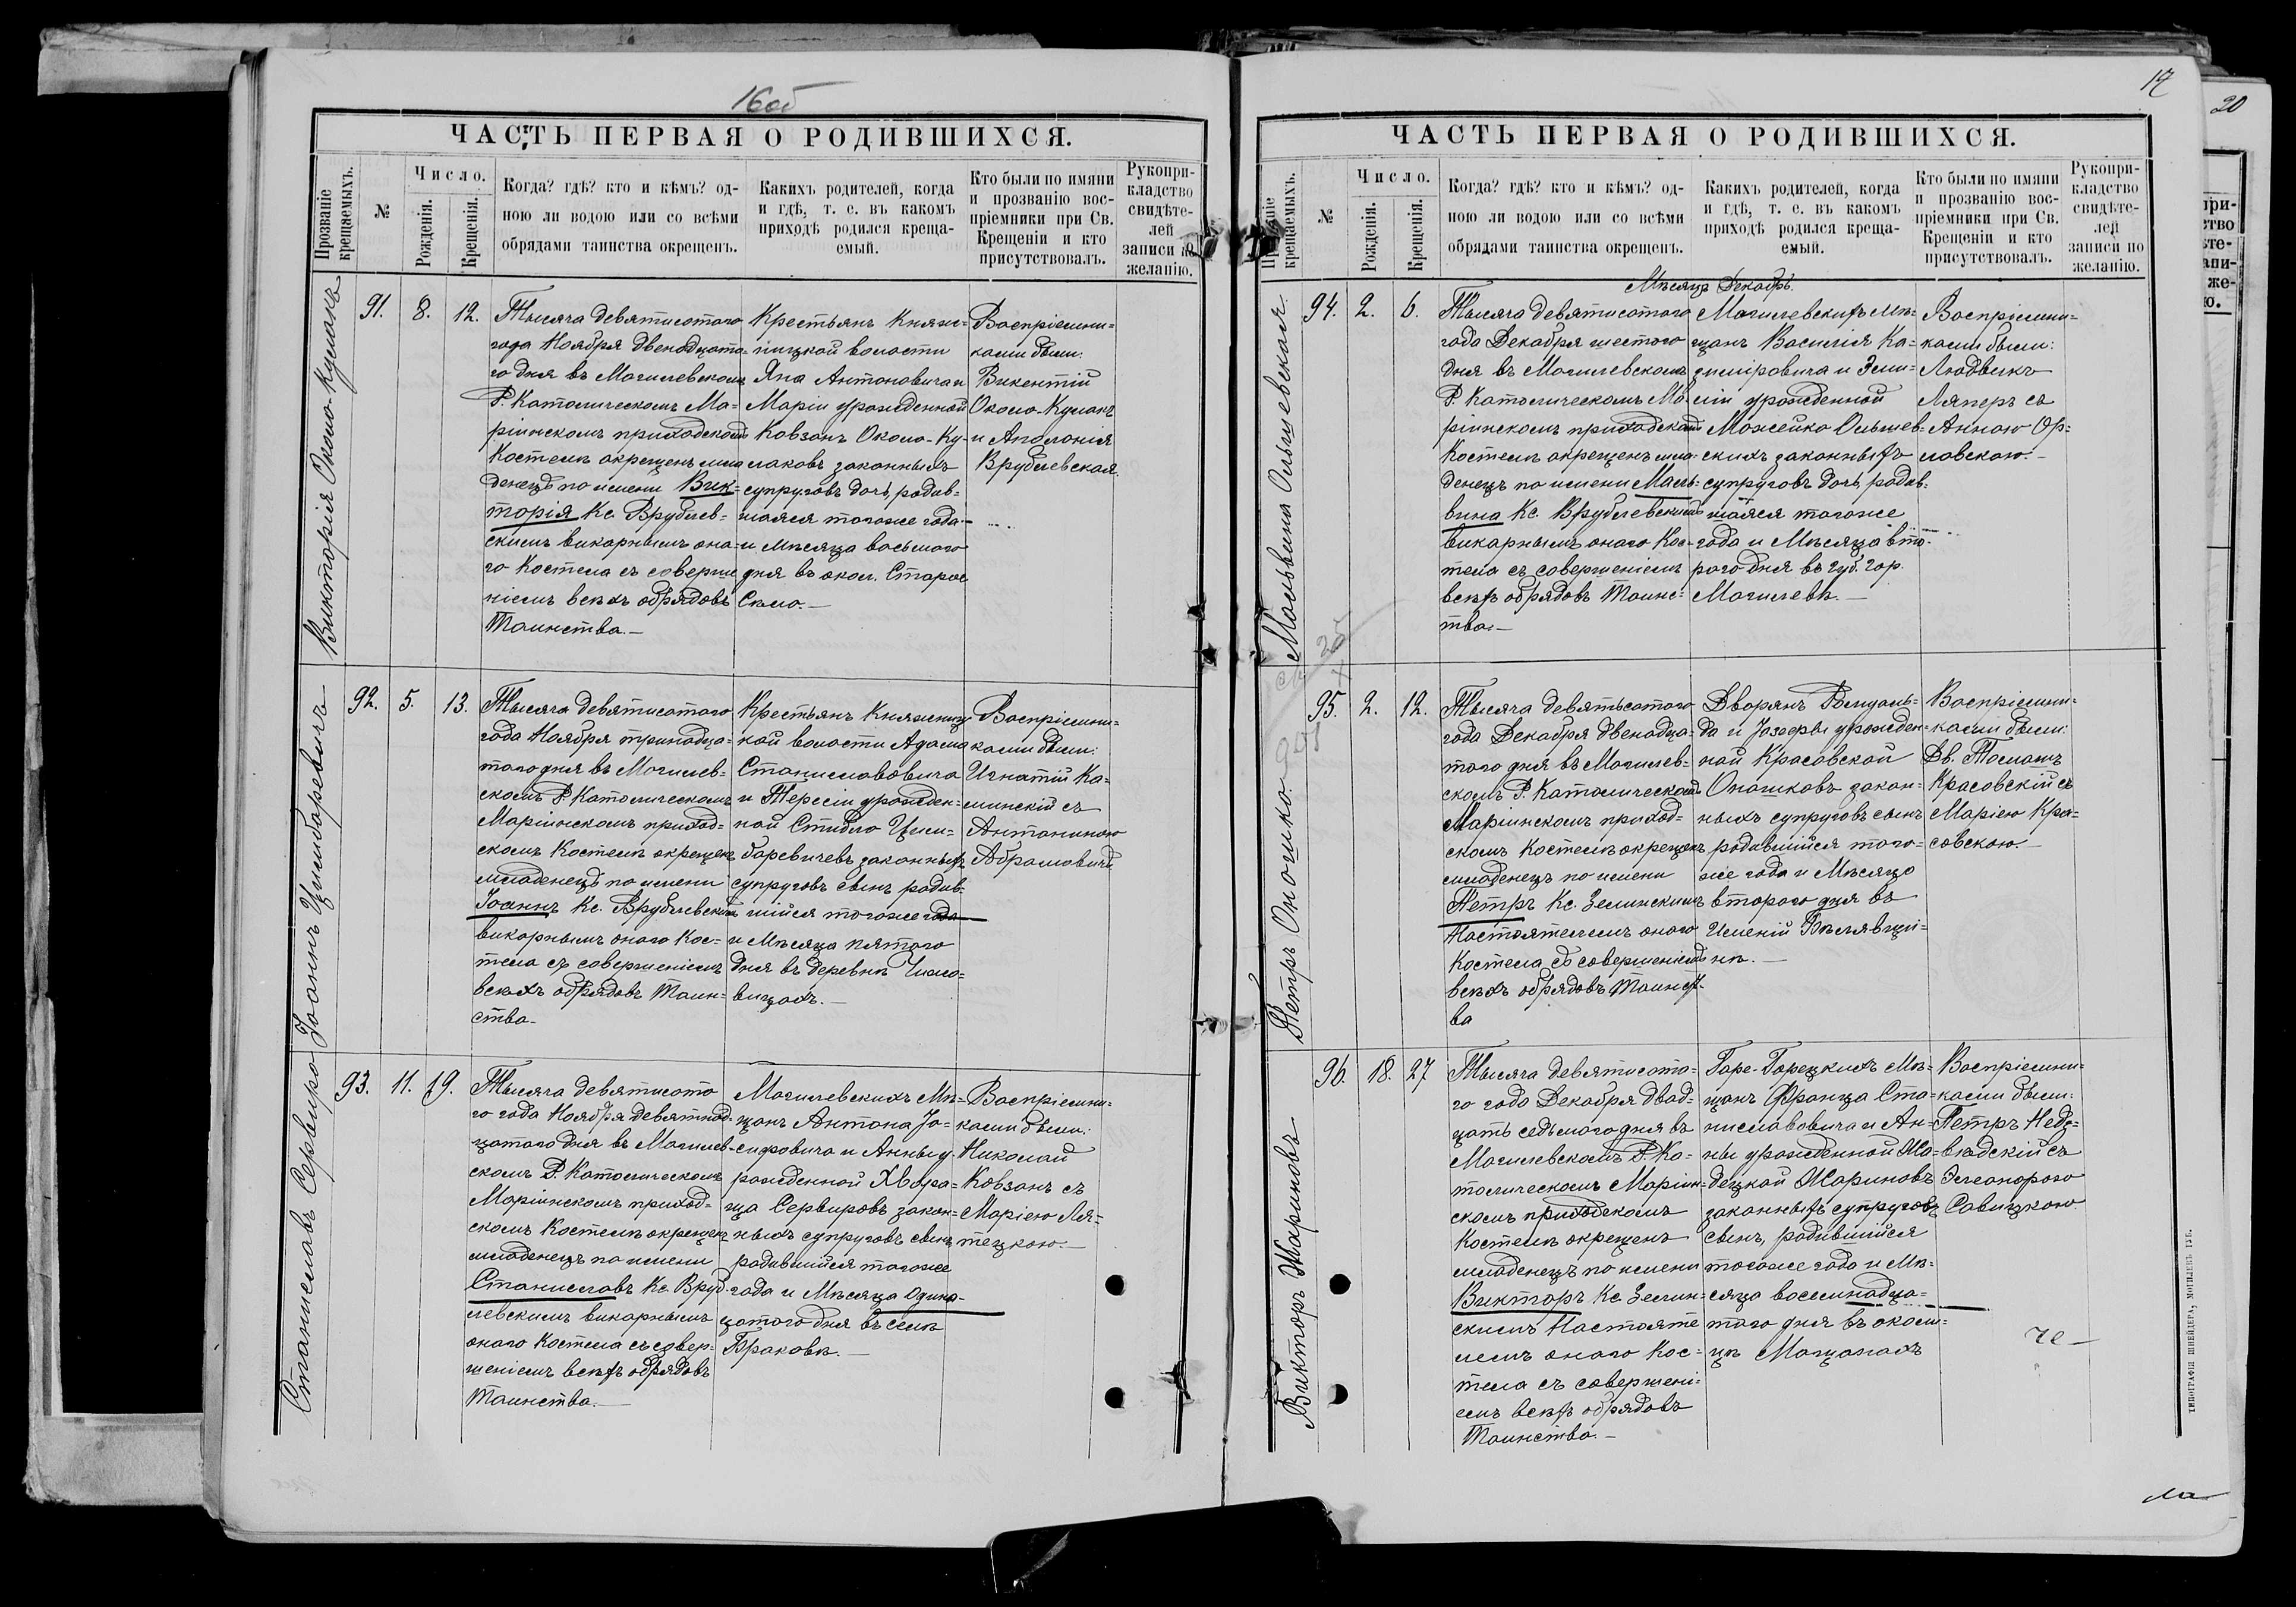 16об
ЧАСТЬ ПЕРВАЯ О РОДИВШИХСЯ.
Прозваніе крещаемыхъ.
№
Число.
Рожденія.
Крещенія.
Когда? гдѣ? кто и кѣмъ? од-
ною ли водою или со всѣми
обрядами таинства окрещенъ.
Какихъ родителей, когда
и гдѣ, т. е. въ какомъ
приходѣ родился креща-
емый.
Кто были по имяни
и прозванію вос-
пріемники при Св.
Крещеніи и кто
присутствовалъ.
Рукопри-
кладство
свидѣте-
лей
записи по
желанію.
Викторія Около-Кулакъ
91.
8.
12.
Тысяча девятисотого
года Ноября двенадцата-
го дня въ Могилевскомъ
Р. Католическомъ Ма-
ріинскомъ приходскомъ
Костелѣ окрещенъ мла
денецъ по имени Вик-
торія Кс. Врублев-
скимъ викарнымъ она-
го Костела съ соверше
ніемъ всѣхъ обрядовъ
Таинства.—
Крестьянъ Княжи-
пицкой волости
Яна Антоновича и
Маріи урожденной
Ковзанъ Около-Ку-
лаковъ законныхъ
супруговъ дочь, родив-
шаяся тогоже года
и Мѣсяца восьмого
дня въ окол. Старое
Село.—
Воспріемни-
ками были:
Викентій
Около-Кулакъ
и Аполонія
Врублевская.
Іоаннъ Цимбаревичъ
92.
5.
13.
Тысяча девятисотого
года Ноября тринадца-
того дня въ Могилев-
скомъ Р. Католическомъ
Маріинскомъ приход-
скомъ Костелѣ окрещенъ
младенецъ по имени
Іоаннъ Кс. Врублевскимъ
викарнымъ оного Кос-
тела съ совершеніемъ
всѣхъ обрядовъ Таин-
ства-
Крестьянъ Княжицц
кой волости Адама
Станиславовича
и Тересіи урожден-
ной Стибло Цим-
баревичевъ законныхъ
супруговъ сынъ родив-
шійся тогоже года
и Мѣсяца пятого
дня въ деревнѣ
вицахъ.—
Воспріемни-
ками были:
Игнатій Ка-
минскій съ
Антониною
Абрамовичъ
Станиславъ Сервиро
93.
11.
19.
Тысяча девятисото
го года Ноября девятнад-
цатого дня въ Могилев-
скомъ Р. Католическомъ
Маріинскомъ приход-
скомъ Костелѣ окрещенъ
младенецъ по имени
Станиславъ Кс. Вруб-
левскимъ викарнымъ
оного Костела съ совер-
шеніемъ всѣхъ обрядовъ
Таинства.—
Могилевскихъ Мѣ-
щанъ Антона Іо-
сифовича и Анны у-
рожденной
ца Сервировъ закон-
ныхъ супруговъ сынъ
родившійся тогоже
года и Мѣсяца Одина-
цатого дня въ селѣ
Браковѣ.—
Воспріемни-
ками были:
Николай
Ковзанъ съ
Маріею Ля-
тецкою.—
17
ЧАСТЬ ПЕРВАЯ О РОДИВШИХСЯ.
крещаемыхъ.
№
Число.
Рожденія.
Крещенія.
Когда? гдѣ? кто и кѣмъ? од-
ною ли водою или со всѣми
обрядами таинства окрещенъ.
Какихъ родителей, когда
и гдѣ, т. е. въ какомъ
приходѣ родился креща-
емый.
Кто были по имяни
и прозванію вос-
пріемники при Св.
Крещеніи и кто
присутствовалъ.
Рукопри-
кладство
свидѣте-
лей
записи по
желанію.
Мѣсяцъ Декабрь.
Мальвина Ольшевская.
94.
2.
6.
Тысяча девятисотого
года Декабря шестого
дня въ Могилевскомъ
Р. Католическомъ Ма-
ріинскомъ приходскомъ
Костелѣ окрещенъ мла-
денецъ по имени Маль-
вина Кс. Врублевскимъ
викарнымъ оного Кос-
тела съ совершеніемъ
всѣхъ обрядовъ Таинс-
тва.—
Могилевскихъ мѣ-
щанъ Василія Ка-
зиміровича и Эми-
ліи урожденной
Можейко Ольшев-
скихъ законныхъ
супруговъ дочь, родив-
шаяся тогоже
года и Мѣсяца вто-
рого дня въ губ. гор.
Могилевѣ.—
Воспріемни-
ками были:
Людвикъ
Ляперъ съ
Анною Ор-
ловскою.—
25
Петръ Оношко.
95.
2.
12.
Тысяча девятьсотого
года Декабря двенадца-
того дня въ Могилев-
скомъ Р. Католическомъ
Маріинскомъ приход-
скомъ Костелѣ окрещенъ
младенецъ по имени
Петръ Кс. Зелинскимъ
Настоятелемъ оного
Костела съ совершеніемъ
всѣхъ обрядовъ Таинст-
ва
Дворянъ Ромуаль-
да и Іозефы урожден-
ной Красовской
Оношковъ закон-
ныхъ супруговъ сынъ
родившійся того-
же года и Мѣсяца
второго дня въ
Имѣній Вѣлявщи-
нѣ.—
Воспріемни-
ками были:
Дв. Томашъ
Красовскій съ
Маріею Кра-
совскою.—
Викторъ Жариновъ
96.
18.
27
Тысяча девятисото-
го года Декабря двад-
цать седьмого дня въ
Могилевскомъ Р. Ка-
толическомъ Маріин-
скомъ приходскомъ
Костелѣ окрещенъ
младенецъ по имени
Викторъ Кс. Зелин-
скимъ Настояте
лемъ оного Кос-
тела съ совершені-
емъ всѣхъ обрядовъ
Таинства.—
Горе-Горецкихъ Мѣ-
щанъ Франца Ста-
ниславовича и Ан-
ны урожденной
децкой Жариновъ
законныхъ супруговъ
сынъ, родившійся
тогоже года и Мѣ-
сяца восемнадца-
того дня въ околи-
цѣ Мащанахъ
Воспріемни-
ками были:
Петръ Недз-
вѣдскій съ
Элеонорою
Савицкою.
че—
ТИПОГРАФІЯ ШНЕЙДЕРА, МОГИЛЕВЪ ГУБ.
ма
20